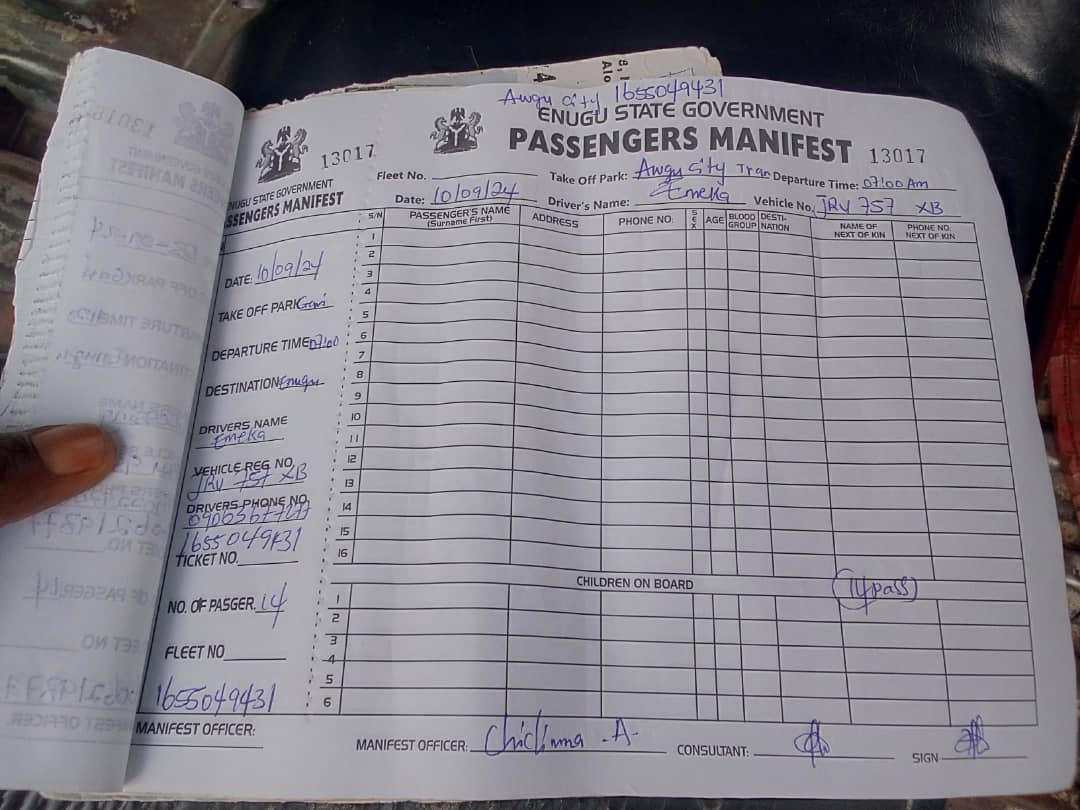 Awgu City 1655049431
ENUGU STATE GOVERNMENT
PASSENGERS MANIFEST 13017
Fleet No. Take Off Park: Awgu City Tran Departure Time: 07:00 Am
Date: 10/09/24 Driver's Name: Emeka Vehicle No. JRV 757 XB
S/N PASSENGER'S NAME (Surname First) ADDRESS PHONE NO: SEX AGE BLOOD GROUP DESTI-NATION NAME OF NEXT OF KIN PHONE NO. NEXT OF KIN
1
2
3
4
5
6
7
8
9
10
11
12
13
14
15
16
CHILDREN ON BOARD (14 pass)
1
2
3
4
5
6
MANIFEST OFFICER: Chidinma .A. CONSULTANT: SIGN
13017
ENUGU STATE GOVERNMENT
PASSENGERS MANIFEST
DATE: 10/09/24
TAKE OFF PARK
DEPARTURE TIME 07:00
DESTINATION Enugu
DRIVERS NAME
Emeka
VEHICLE REG NO.
JRV 757 XB
DRIVERS PHONE NO.
1655049431
TICKET NO.
NO. OF PASGER. 14
FLEET NO
1655049431
MANIFEST OFFICER: